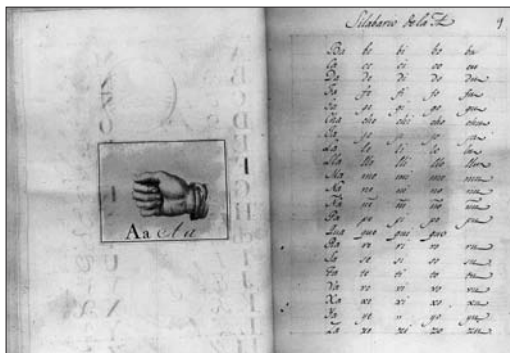 Aa
Silabario de la A 9
Ba be bi bo bu
Ca ce ci co cu
Da de di do du
Fa fe fi fo fu
Ga ge gi go gu
Cha che chi cho chu
Ja je ji jo ju
La le li lo lu
Lla lle lli llo llu
Ma me mi mo mu
Na ne ni no nu
Ña ñe ñi ño ñu
Pa pe pi po pu
Qua que qui quo
Ra re ri ro ru
Sa se si so su
Ta te ti to tu
Va ve vi vo vu
Xa xe xi xo xu
Ya ye yi yo yu
Za ze zi zo zu